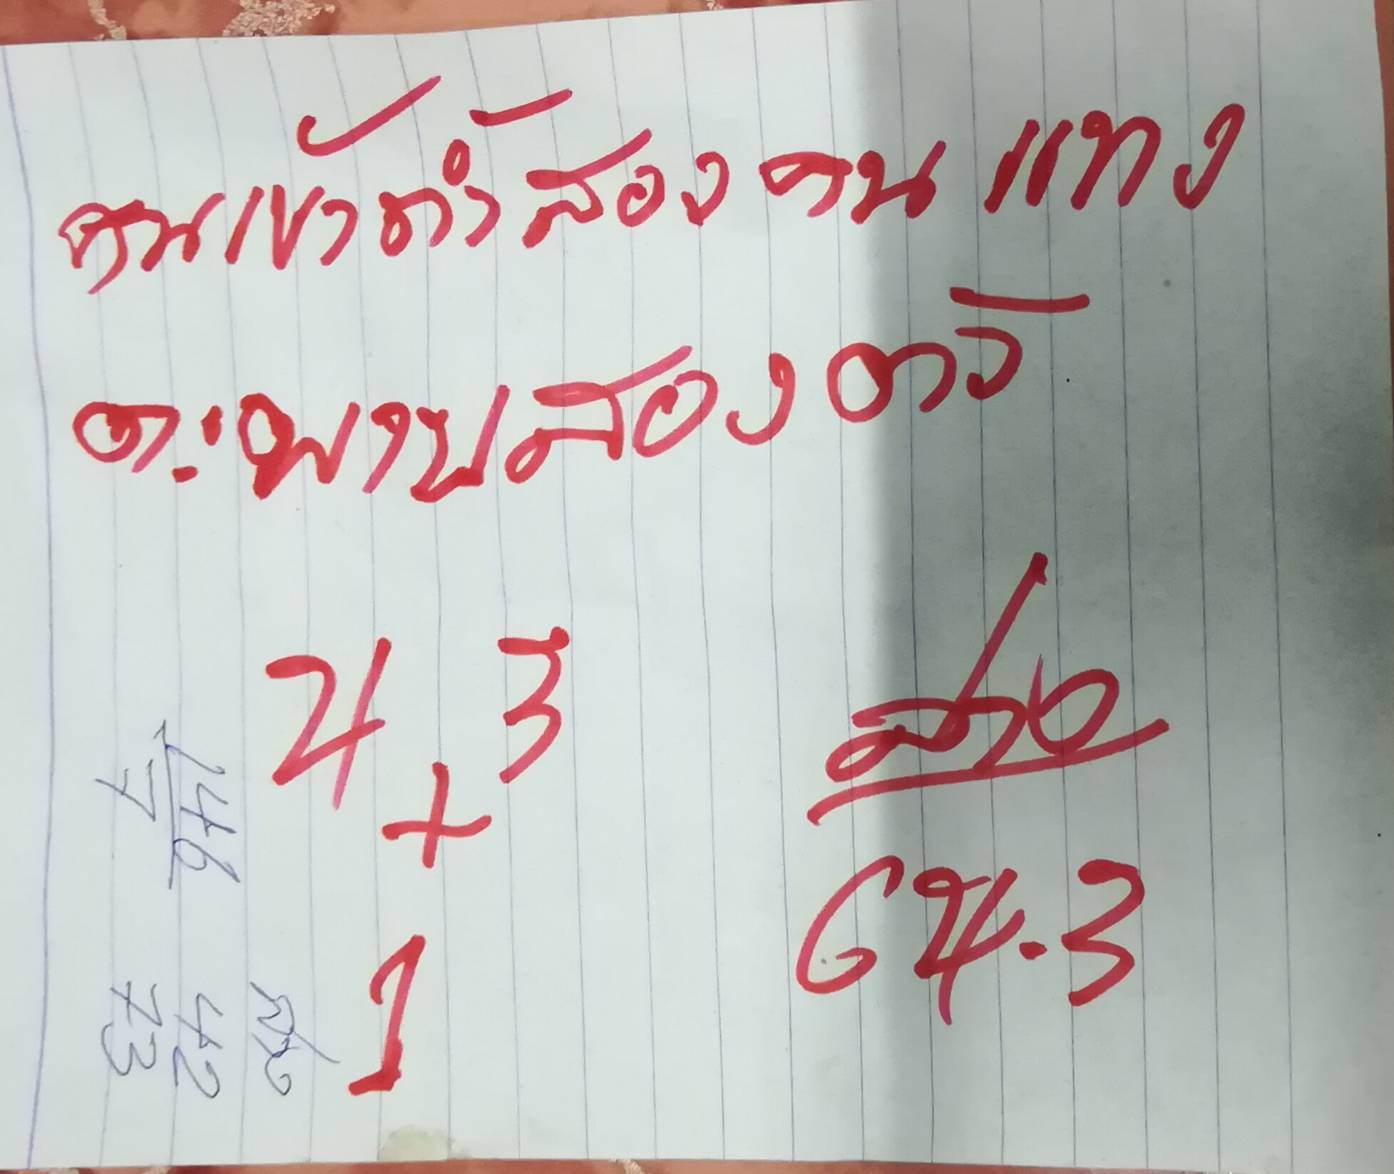 คนเข้าถ้ำสองคนแทง
ตะพาบสองตัว
4 3
+
1
ล่าง
64.3
146
7
ล่าง
42
73